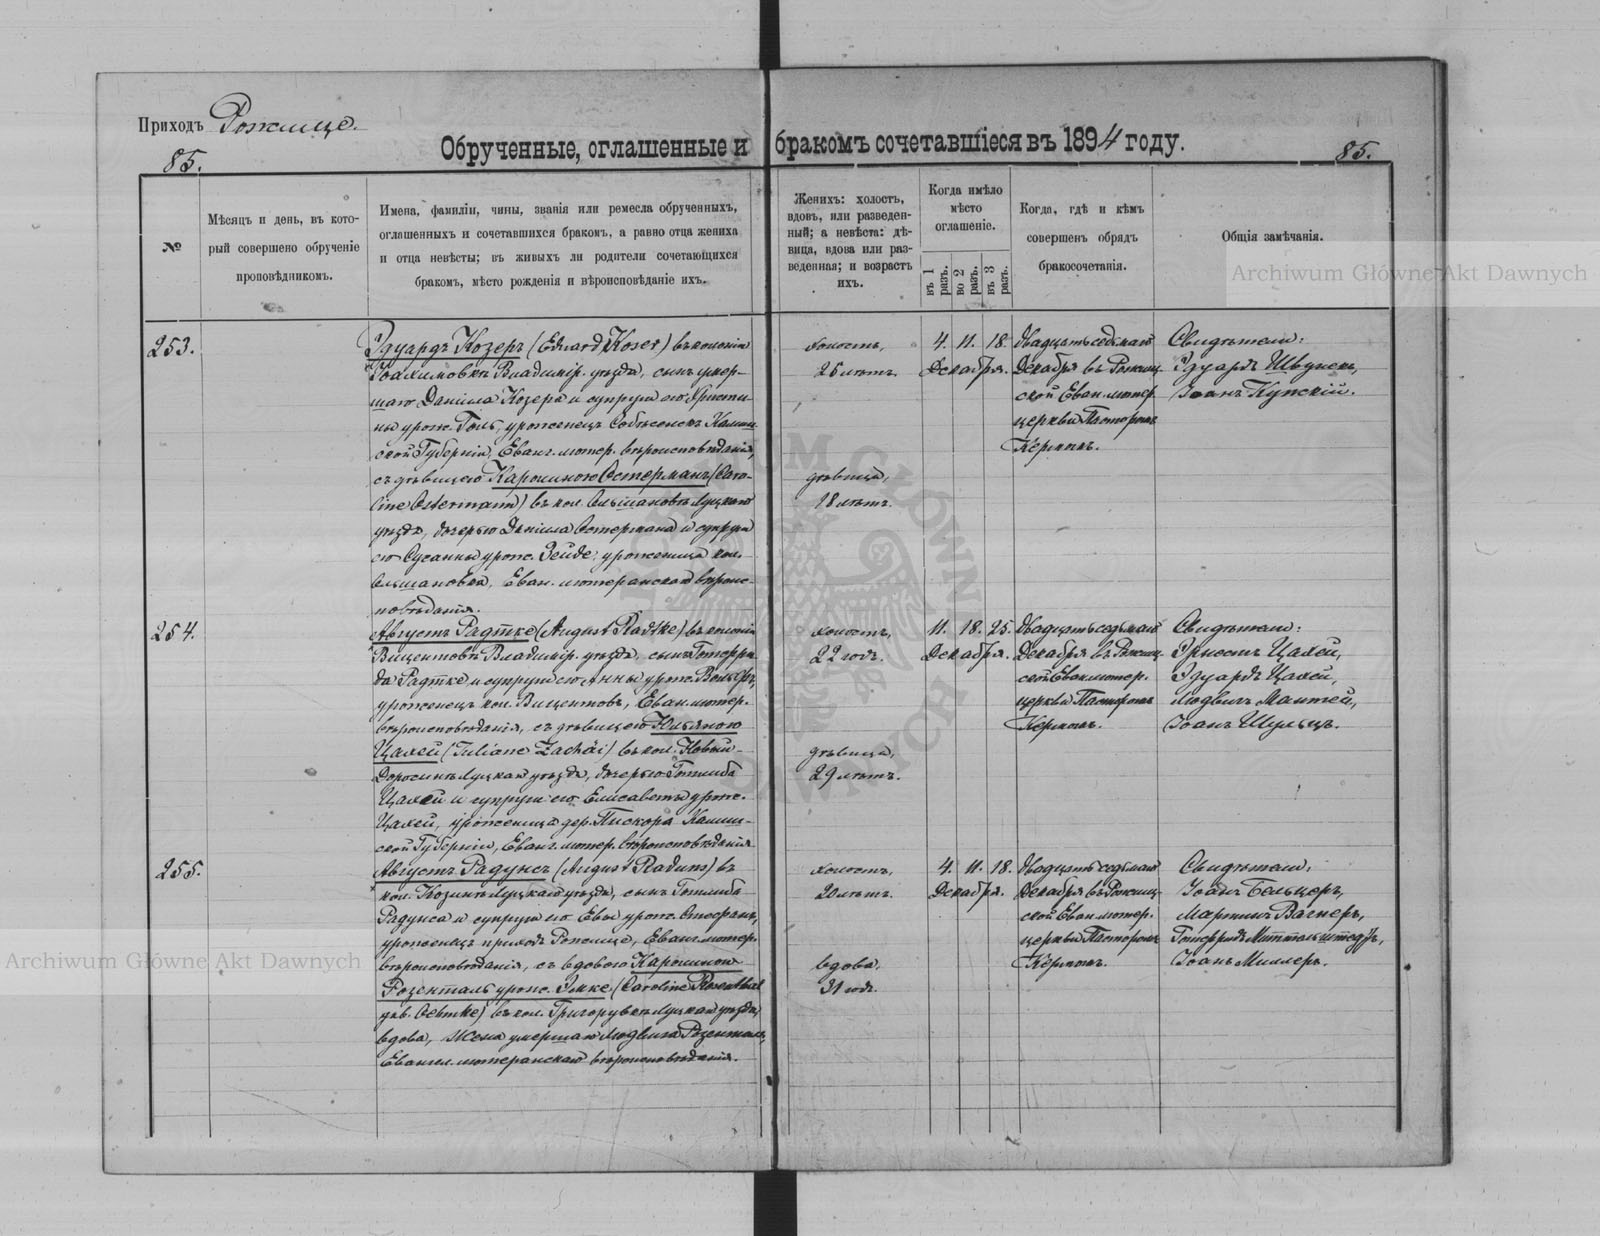 Приходъ Рожище.
85.
Обрученные, оглашенные и бракомъ сочетавшіеся въ 1894 году.
85.
№
Мѣсяцъ и день, въ кото-
рый совершено обрученіе
проповѣдникомъ.
Имена, фамиліи, чины, званія или ремесла обрученныхъ,
оглашенныхъ и сочетавшихся бракомъ, а равно отца жениха
и отца невѣсты; въ живыхъ ли родители сочетающихся
бракомъ, мѣсто рожденія и вѣроисповѣданіе ихъ.
Женихъ: холостъ,
вдовъ, или разведен-
ный; а невѣста: дѣ-
вица, вдова или раз-
веденная; и возрастъ
ихъ.
Когда имѣло
мѣсто
оглашеніе.
въ 1 разъ.
во 2 разъ.
въ 3 разъ.
Когда, гдѣ и кѣмъ
совершенъ обрядъ
бракосочетанія.
Общія замѣчанія.
253.
Эдуардъ Козеръ (Eduard Koser) въ колоніи
Іоахимовкѣ Владимір. уѣзда, сынъ умер-
шаго Даніила Козера и супруги его Христи-
ны урож. Голь, уроженецъ Калиш-
ской Губерніи, Еванг. лютер. вѣроисповѣданія,
съ дѣвицею Каролиною Остерманъ (Caro-
line Ostermann) въ кол. Ольшановкѣ Луцкаго
уѣзда, дочерью Даніила Остермана и супруги
его Сусанны урож. Зейде, уроженица кол.
Ольшановка, Еван. лютеранскаго вѣроис-
повѣданія.
холостъ,
26 лѣтъ.
дѣвица,
18 лѣтъ.
4. 11. 18.
Декабря.
Двадцать седьмаго
Декабря въ Рожищ-
ской Еван. лютер.
церкви Пасторомъ
Кермомъ.
Свидѣтели:
Эдуардъ Швунекъ,
Іоанъ Купскій.
254.
Августъ Радтке (August Radtke) въ колоніи
Вицентовкѣ Владимір. уѣзда, сынъ Готфри-
да Радтке и супруги его Анны урож. Вольфъ,
уроженецъ кол. Вицентовъ, Еван. лютер.
вѣроисповѣданія, съ дѣвицею Юльяною
Цахей (Juliane Zachäi) въ кол. Новый-
Доросинъ Луцкаго уѣзда, дочерью Готлиба
Цахей и супруги его Елисаветы урож.
Цахей, уроженица дер. Пискора Калиш-
ской Губерніи, Еванг. лютер. вѣроисповѣданія.
холостъ,
22 годъ.
дѣвица,
29 лѣтъ.
11. 18. 25.
Декабря.
Двадцать седьмаго
Декабря въ Рожищ-
ской Еван. лютер.
церкви Пасторомъ
Кермомъ.
Свидѣтели:
Эрнстъ Цахей,
Эдуардъ Цахей,
Людвигъ Мантей,
Іоанъ Шульцъ.
255.
Августъ Радунсъ (August Raduns) въ
кол. Козинъ Луцкаго уѣзда, сынъ Готлиба
Радунса и супруги его Евы урож.
уроженецъ приходъ Рожище, Еванг. лютер.
вѣроисповѣданія, съ вдовою Каролиною
Розенталь урож. Эмке (Caroline Rosenthal
geb. Oehmke) въ кол. Григорувкѣ Луцкаго уѣзда,
вдова, жена умершаго Людвига Розенталь,
Евангел. лютеранскаго вѣроисповѣданія.
холостъ,
20 лѣтъ.
вдова,
31 годъ.
4. 11. 18.
Декабря.
Двадцать седьмаго
Декабря въ Рожищ-
ской Еван. лютер.
церкви Пасторомъ
Кермомъ.
Свидѣтели:
Іоанъ Бельцеръ,
Мартинъ Вагнеръ,
Готфридъ Миттельштедтъ,
Іоанъ Миллеръ.
Archiwum Główne Akt Dawnych
Archiwum Główne Akt Dawnych
ARCHIWUM GŁÓWNE AKT DAWNYCH